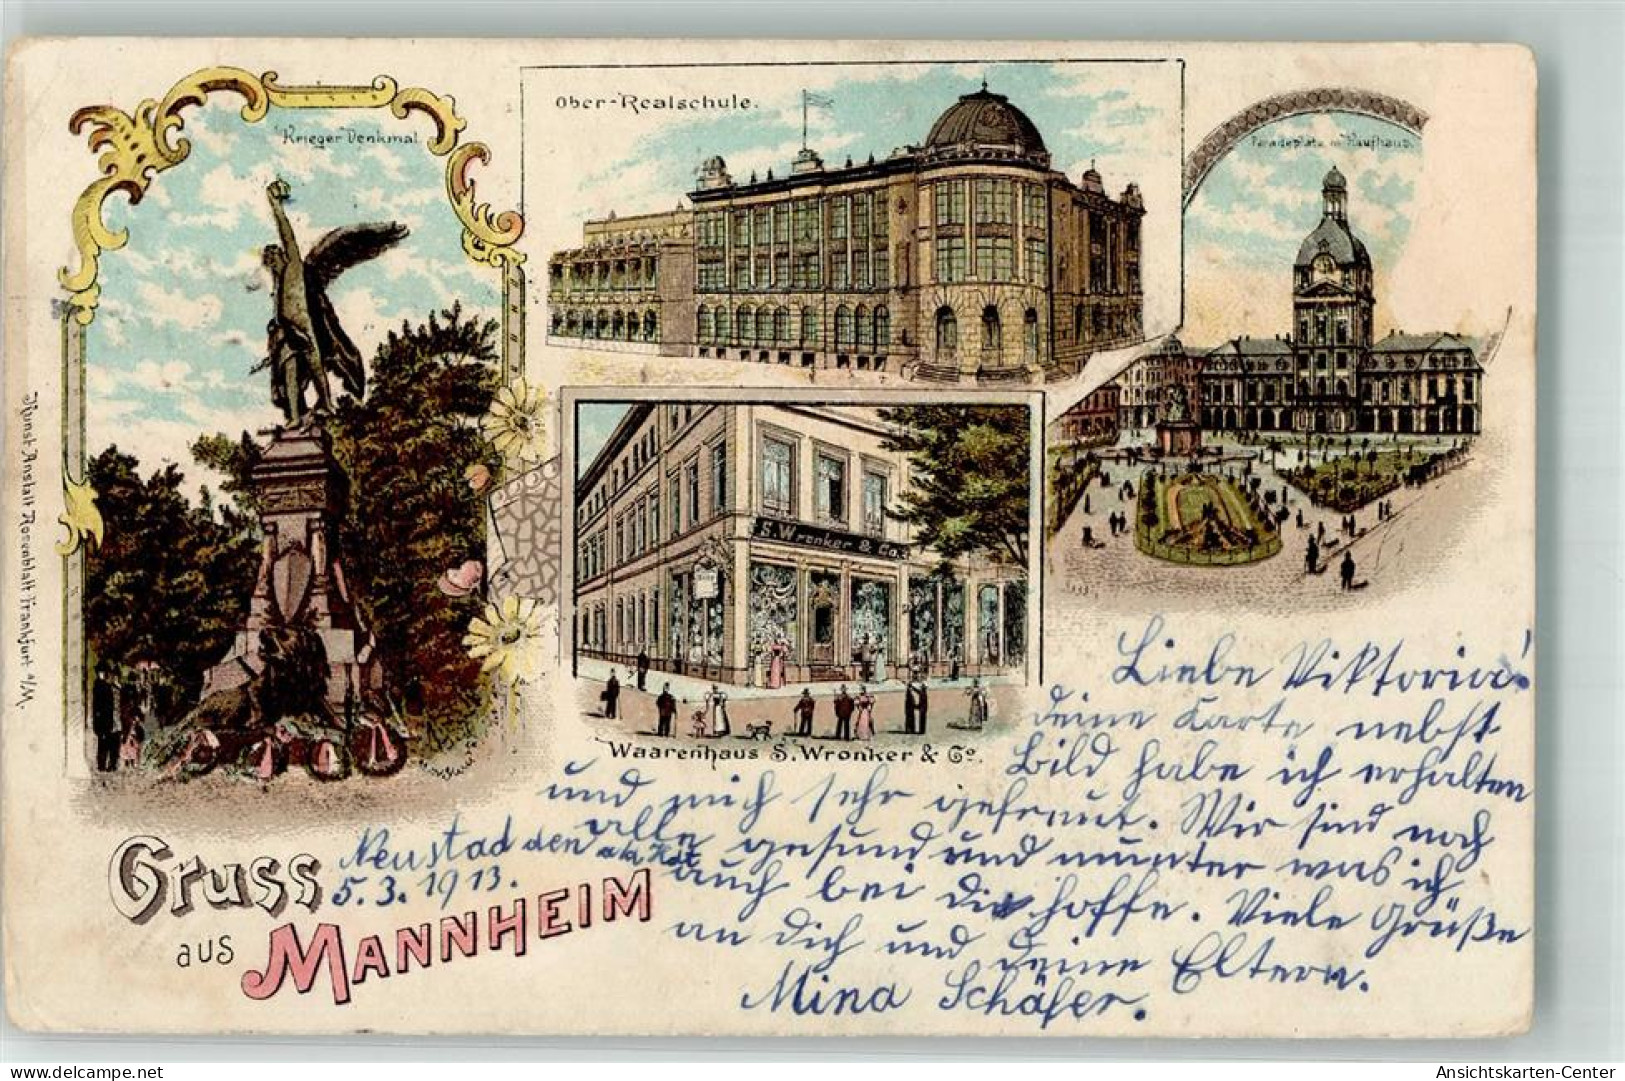 Krieger Denkmal.
Ober-Realschule.
Paradeplatz m Kaufhaus.
S. Wronker & Co.
Waarenhaus S. Wronker & Co.
Kunst-Anstalt Rosenblatt Frankfurt a/M.
Gruss
aus
MANNHEIM
Neustad den
5.3.1913.
Liebe Viktoria!
deine Karte nebst
Bild habe ich erhalten
und mich sehr gefreut. Wir sind noch
alle gesund und munter was ich
auch bei dir hoffe. Viele Grüße
an dich und deine Eltern.
Mina Schäfer.
Ansichtskarten-Center
www.delcampe.net